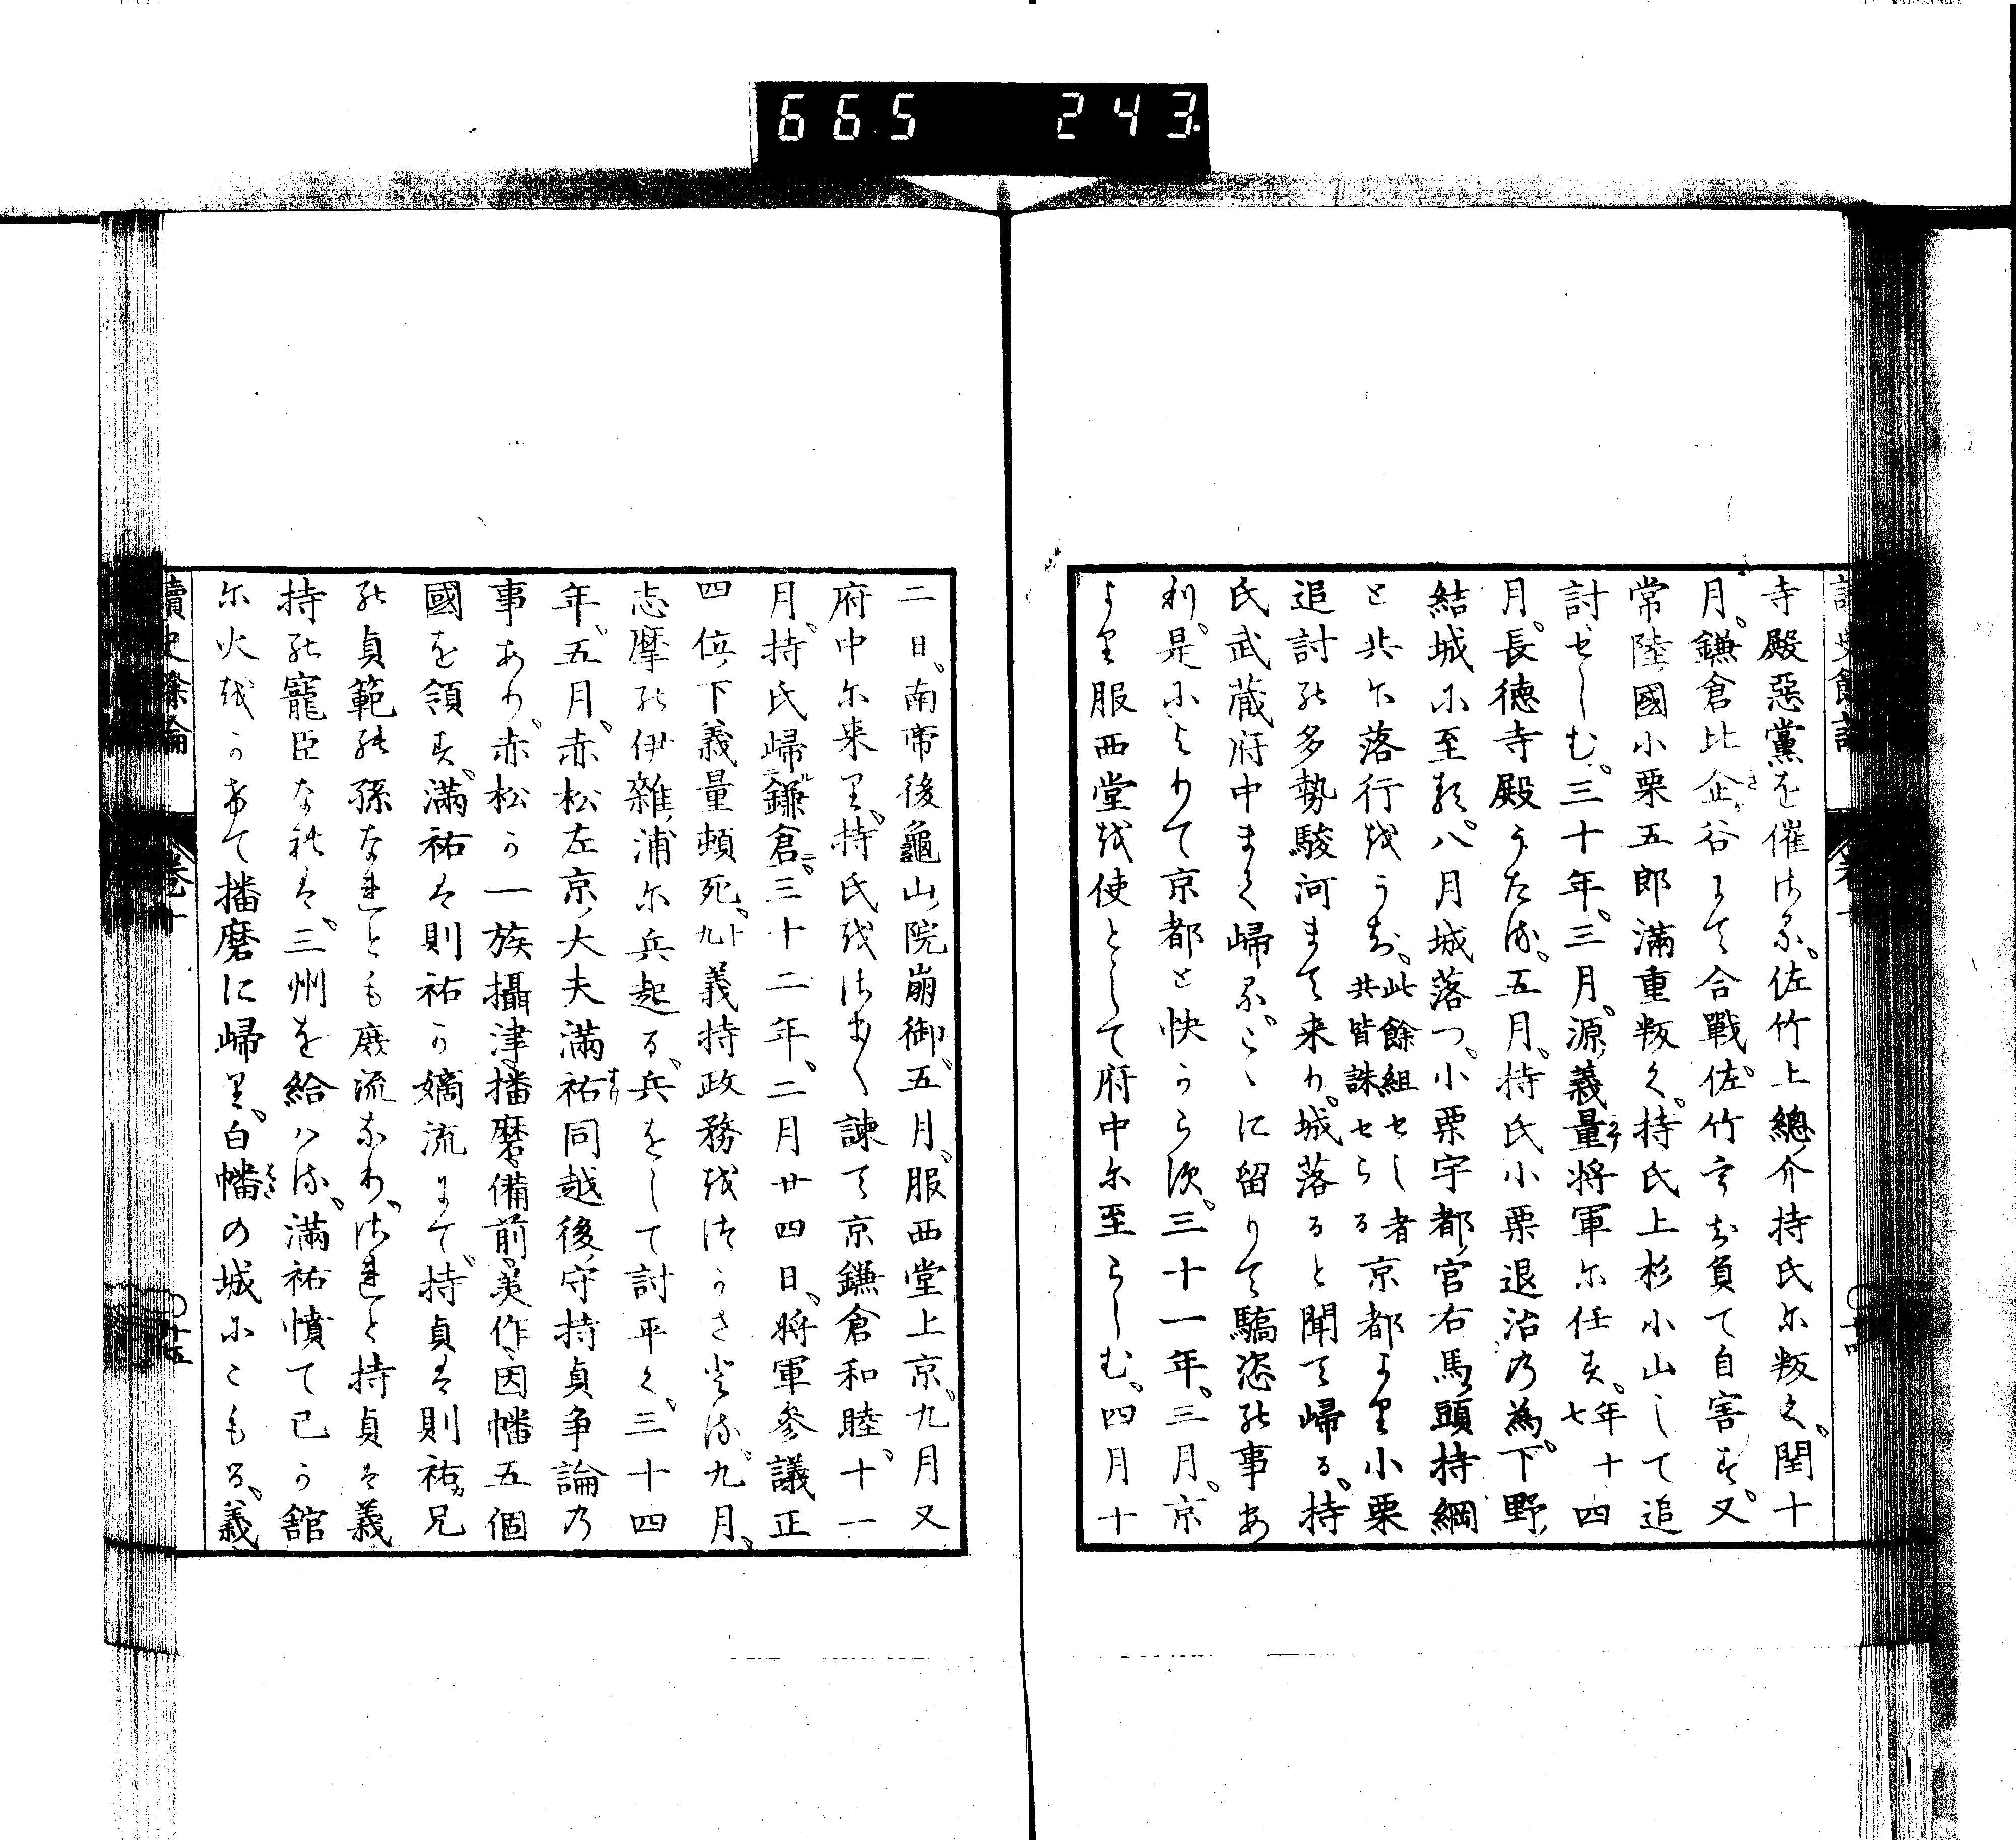 665 243
寺殿惡黨を催はる。佐竹上總介持氏に叛く。閏十
月。鎌倉比企谷にて合戰。佐竹う ち負て自害す。又
常陸國小栗五郎滿重叛く。持氏上杉小山して追
討せしむ。三十年。三月。源義量將軍に任す。年十七四
月。長徳寺殿うたる。五月。持氏小栗退治の為。下野
結城に至る。八月城落つ。小栗宇都宮右馬頭持綱
と共に落行をうち。此餘組せし者共皆誅せらる京都より小栗
追討の多勢駿河まて来り。城落ると聞て歸る。持
氏武藏府中まて歸る。こゝに留りて驕恣の事あ
り。是によりて京都と快からす。三十一年。三月。京
より服西堂を使として府中に至らしむ。四月十
二日。南帝後龜山院崩御。五月。服西堂上京。九月又
府中に来り。持氏を 諫て京鎌倉和睦。十一
月。持氏歸鎌倉ニ。三十二年。二月廿四日。將軍參議正
四位下義量頓死。十九義持政務をつかさとる。九月。
志摩の伊雜浦に兵起る。兵をして討平く。三十四
年。五月。赤松左京大夫滿祐同越後守持貞争論の
事あり。赤松か一族攝津播磨備前美作因幡五個
國を領す。滿祐は則祐か嫡流にて。持貞は則祐カ兄
の貞範の孫なれとも庶流なり。されと持貞は義
持の寵臣なれは。三州を給はる。滿祐憤て已か舘
に火をかけて播磨に歸り。白幡の城にこもる。義
讀史餘論 卷 十五